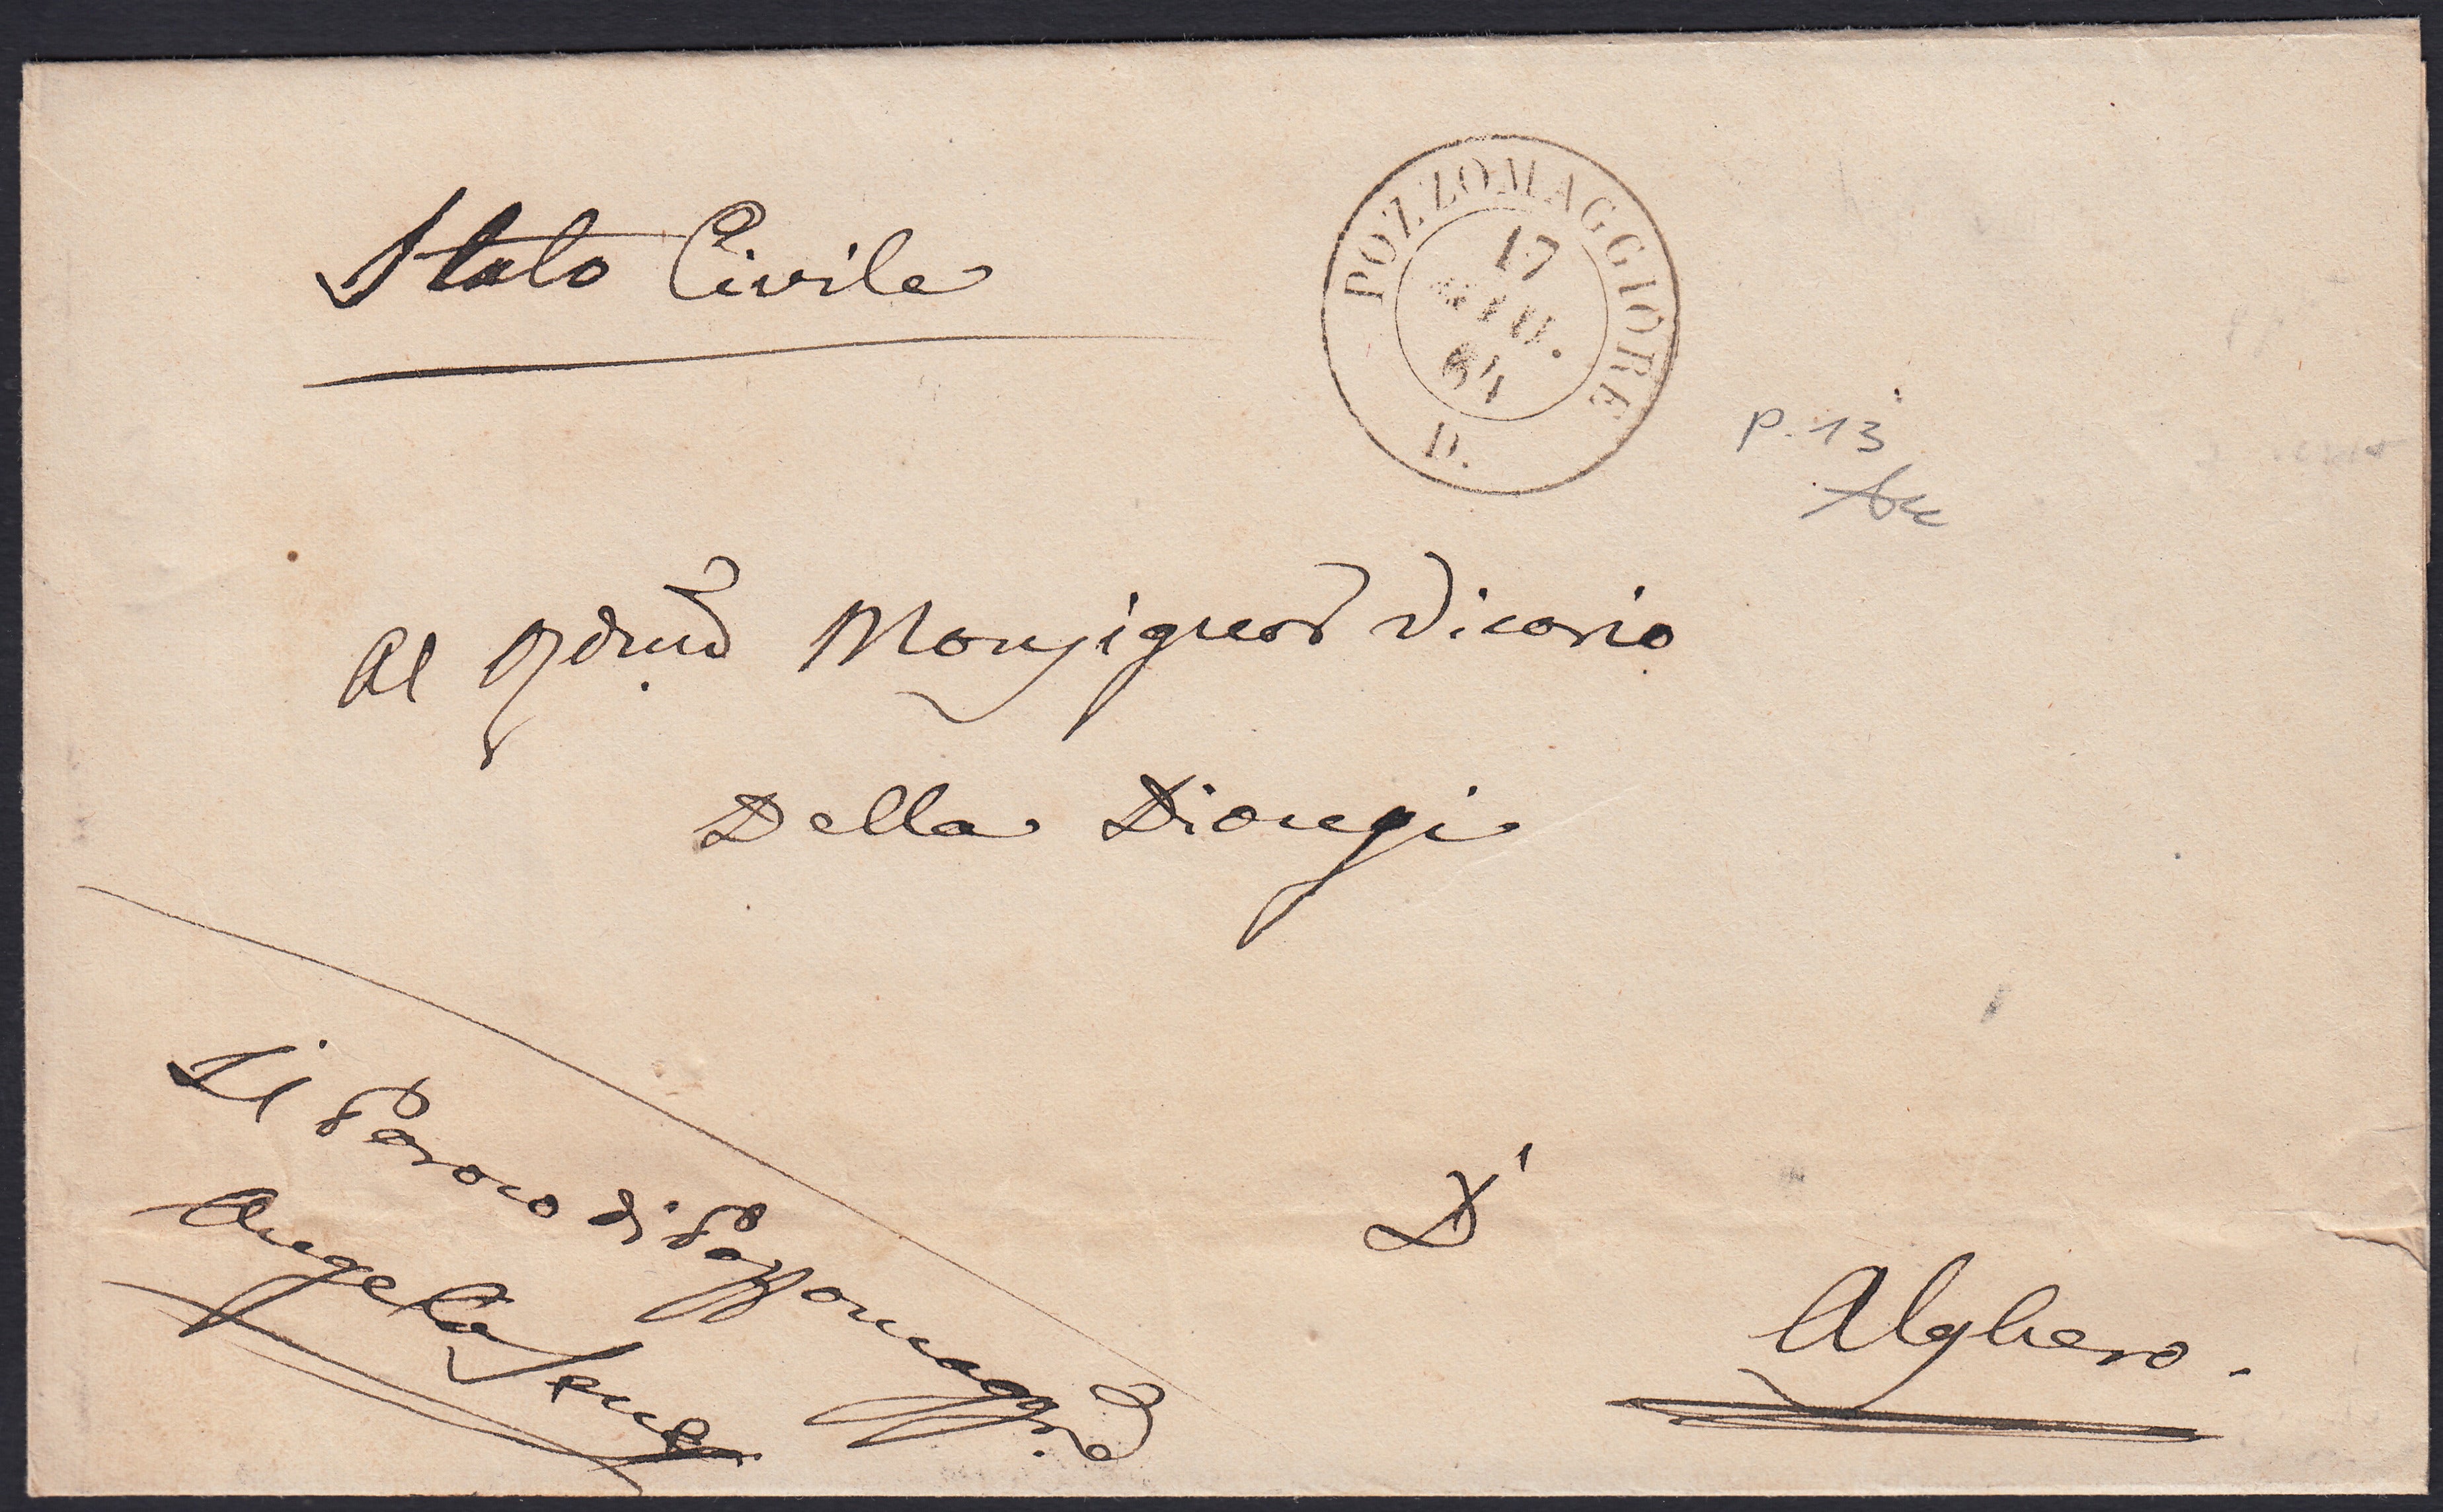 Stato Civile
POZZOMAGGIORE
17
GIU.
64
D.
P. 13
Al Rdmo Monsignor Vicario
Della Diocesi
Il Paroco di Pozzomaggre
Angelo
D'
Alghero.